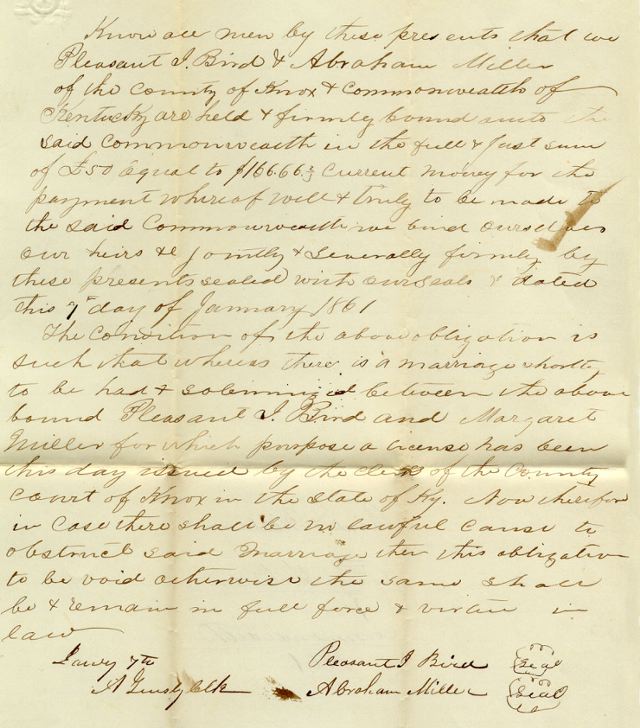 Know all men by these presents that we
Pleasant J. Bird & Abraham Miller
of the County of Knox & Commonwealth of
Kentucky are held & firmly bound unto the
said Commonwealth in the full & Just sum
of £50 Equal to $166.66⅔ Current money for the
payment whereof will & truly to be made to
the said Commonwealth we bind ourselves
our heirs &c Jointly & severally firmly by
these presents sealed with our seals & dated
this 7th day of January 1861
The Condition of the above obligation is
such that whereas there is a marriage shortly
to be had & solemnized between the above
bound Pleasant J. Bird and Margaret
Miller for which purpose a License has been
this day issued by the clerk of the County
Court of Knox in the State of Ky. Now therefore
in Case there shall be no lawful cause to
obstruct said Marriage then this obligation
to be void otherwise the same shall
be & remain in full force & virtue in
law
7th Pleasant J Bird seal
Clk Abraham Miller seal